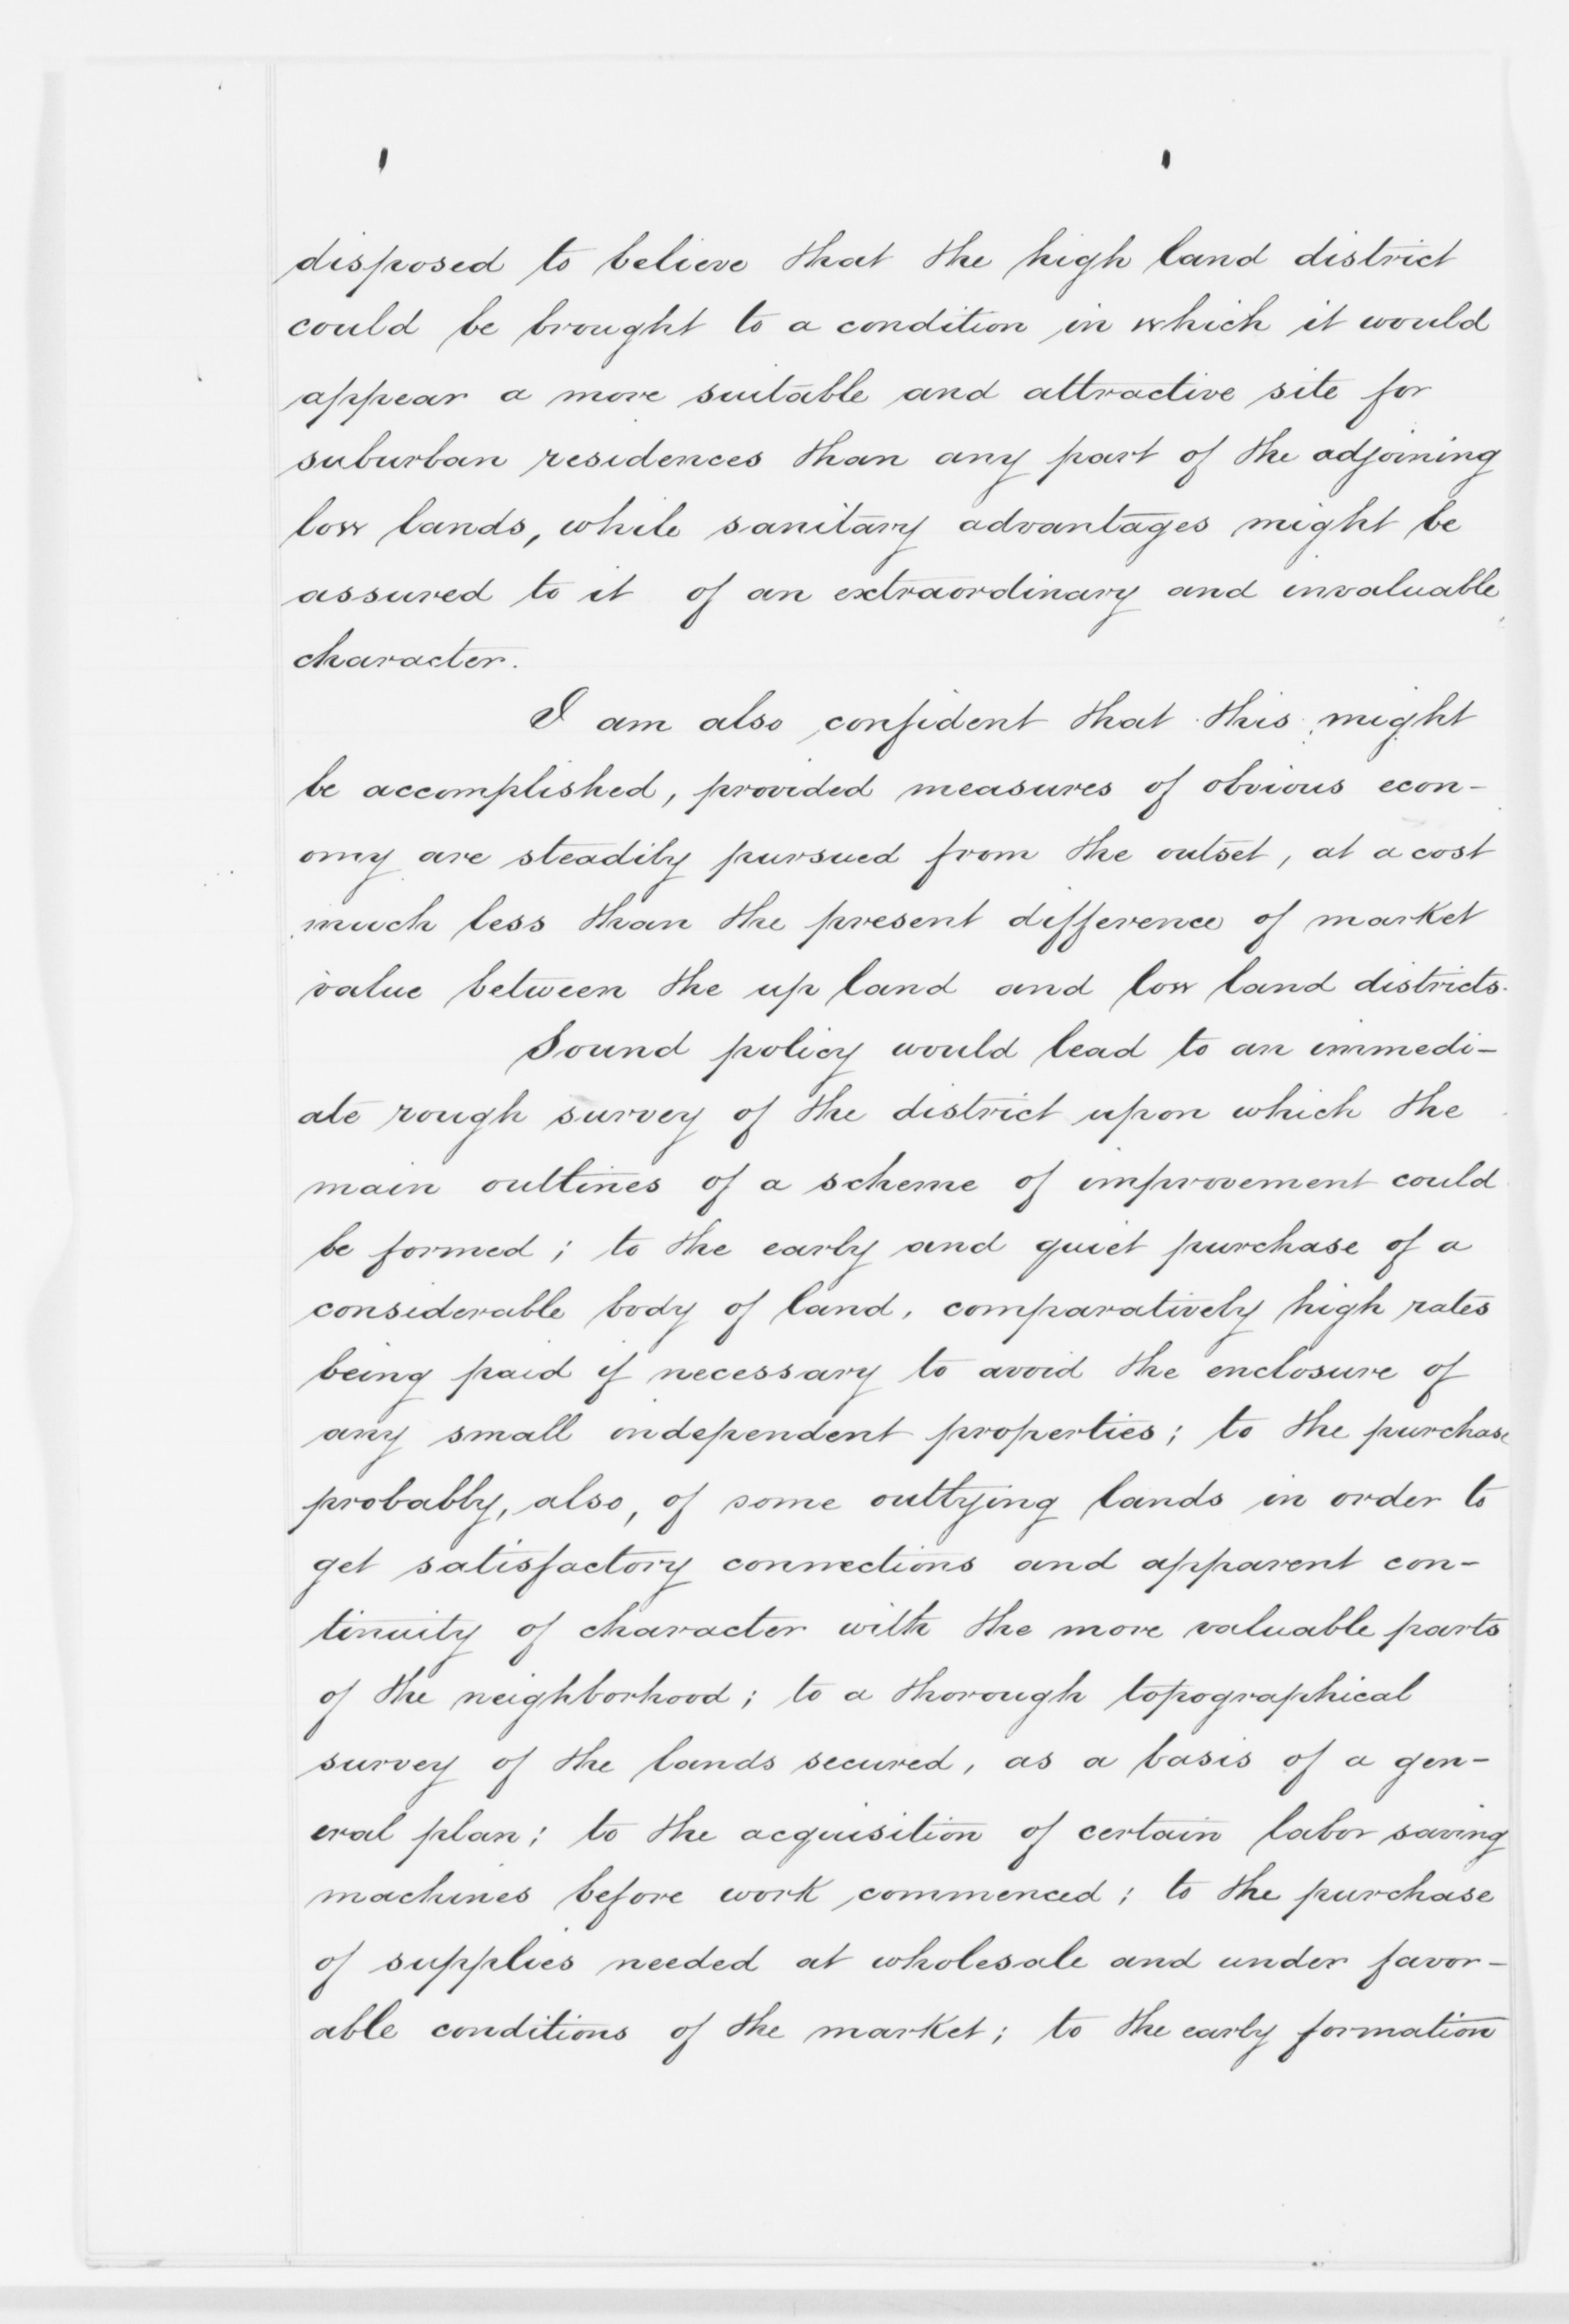 disposed to believe that the high land district
could be brought to a condition in which it would
appear a more suitable and attractive site for
suburban residences than any part of the adjoining
low lands, while sanitary advantages might be
assured to it of an extraordinary and invaluable
character.
I am also confident that this might
be accomplished, provided measures of obvious econ-
omy are steadily pursued from the outset, at a cost
much less than the present difference of market
value between the up land and low land districts.
Sound policy would lead to an immedi-
ate rough survey of the district upon which the
main outlines of a scheme of improvement could
be formed; to the early and quiet purchase of a
considerable body of land, comparatively high rates
being paid if necessary to avoid the enclosure of
any small independent properties; to the purchase
probably, also, of some outlying lands in order to
get satisfactory connections and apparent con-
tinuity of character with the more valuable parts
of the neighborhood; to a thorough topographical
survey of the lands secured, as a basis of a gen-
eral plan; to the acquisition of certain labor saving
machines before work commenced; to the purchase
of supplies needed at wholesale and under favor-
able conditions of the market; to the early formation